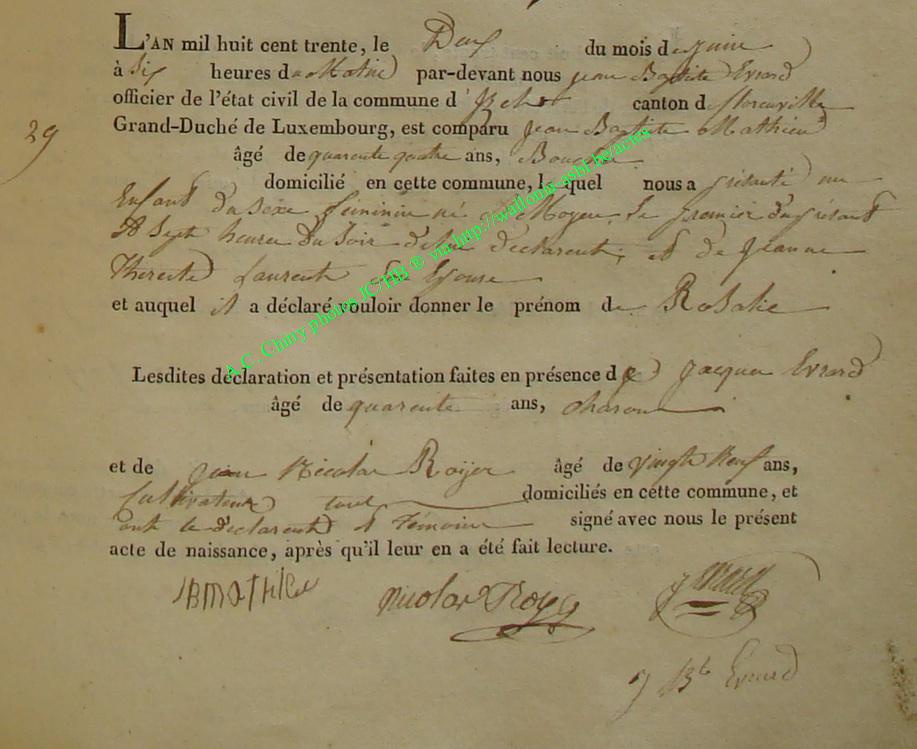 L'AN mil huit cent trente, le Deux du mois de Juin
à Six heures du Matin par-devant nous jean Baptiste Evrard
officier de l'état civil de la commune d' canton de florenville
29
Grand-Duché de Luxembourg, est comparu jean Baptiste Mathieu
âgé de quarente quatre ans,
domicilié en cette commune, lequel nous a présenté un
Enfant du sexe féminin né à Moyen le premier du présent
à Sept heures du Soir de lui déclarent, et de jeanne
Therese Laurent son Epouse
et auquel il a déclaré vouloir donner le prénom de Rosalie
Lesdites déclaration et présentation faites en présence de jacques Evrard
âgé de quarente ans, charon
et de jean Nicolas Royer âgé de vingt Neuf ans,
Cultivateur tous domiciliés en cette commune, et
ont le déclarent et Témoins signé avec nous le présent
acte de naissance, après qu'il leur en a été fait lecture.
JBMATHIEU nicolas Royer j Evrard
j Bte Evrard
A.C. Chiny photos JC/THI ® via http://wallonia-asbl.be/actes